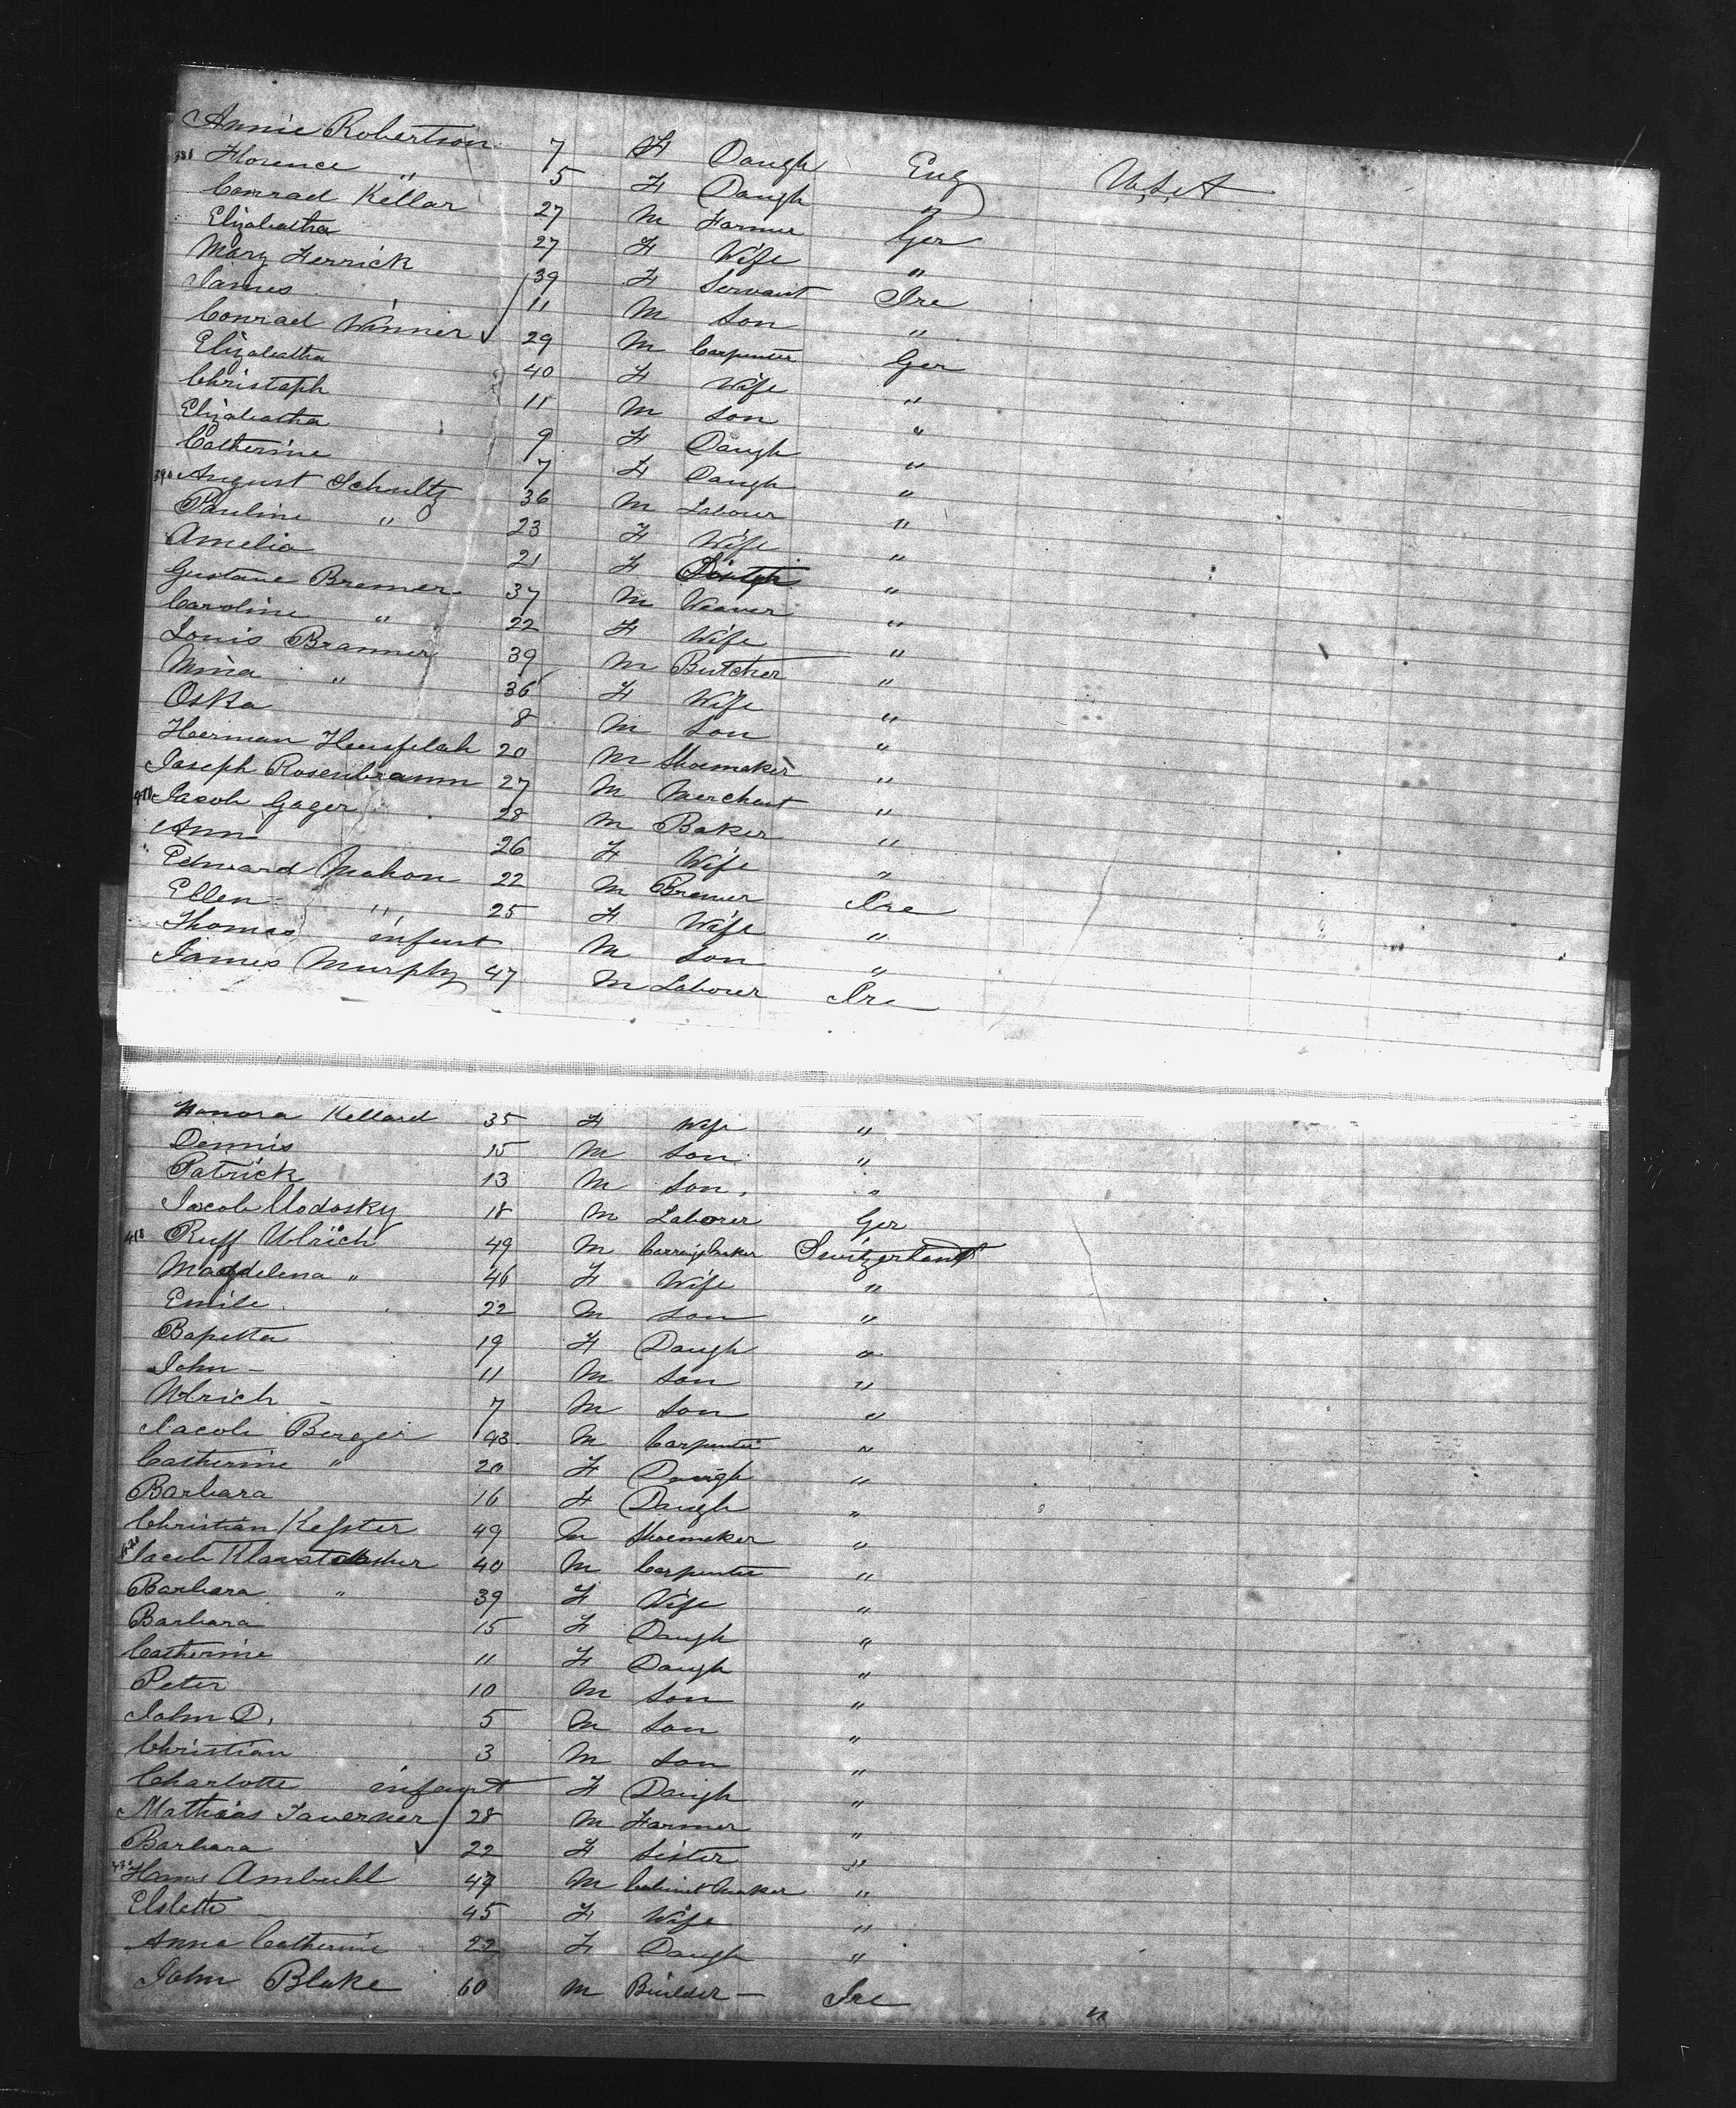 Annie Robertson 7 F Daugh Eng U.S.A
381 Florence " 5 F Daugh "
Conrad Kellar 27 M Farmer Ger
Elizabatha 27 F Wife "
Mary Ferrick 39 F Servant Ire
James 11 M Son "
Conrad Winner 29 M Carpenter Ger
Elizabatha 40 F Wife "
Christoph 11 M Son "
Elizabatha 9 F Daugh "
Catherine 7 F Daugh "
390 August Schultz 36 M Labour "
Pauline " 23 F Wife "
Amelia 21 F "
Gustave Bremer 37 M Weaver "
Caroline " 22 F Wife "
Louis Branner 39 M Butcher "
Mina " 36 F Wife "
Oska 8 M Son "
Herman 20 M Shoemaker "
Joseph Rosenbramm 27 M Merchent "
400 Jacob Gager 28 M Baker "
Ann 26 F Wife "
Edward Mahon 22 M Brewer Ire
Ellen " 25 F Wife "
Thomas infant M Son "
James Murphy 47 M Laborer Ire
Honora Kellard 35 F Wife "
Dennis 15 M Son "
Patrick 13 M Son. "
Jacob Modosky 18 M Laborer Ger
410 Ruff Ulrich 49 M Switzerland
Magdelena " 46 F Wife "
Emile 22 M Son "
Bapetta 19 F Daugh "
John - 11 M Son "
Ulrich - 7 M Son "
Jacob Berger 43 M Carpenter "
Catherine " 20 F Daugh "
Barbara 16 F Daugh "
Christian Kester 49 M Shoemaker "
420 Jacob 40 M Carpenter "
Barbara " 39 F Wife "
Barbara 15 F Daugh "
Catherine 11 F Daugh "
Peter 10 M Son "
John D. 5 M Son "
Christian 3 M Son "
Charlotte infant F Daugh "
Mathias Taverner 28 M Farmer "
Barbara 22 F Sister "
430 Hans Ambuhl 47 M Cabinet Maker "
Elsbeth - 45 F Wife "
Anna Catherine 22 F Daugh "
John Blake 60 M Builder - Ire "